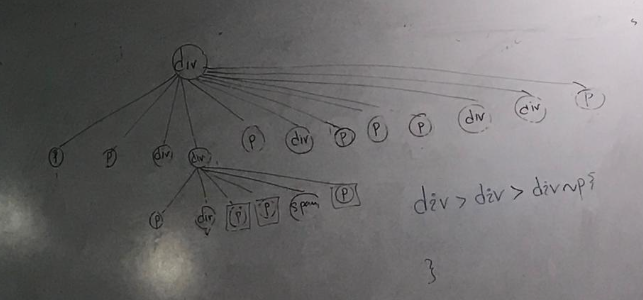 div
P P div div P div P P P div div P
P div P P span P
div > div > div ~ p {
}